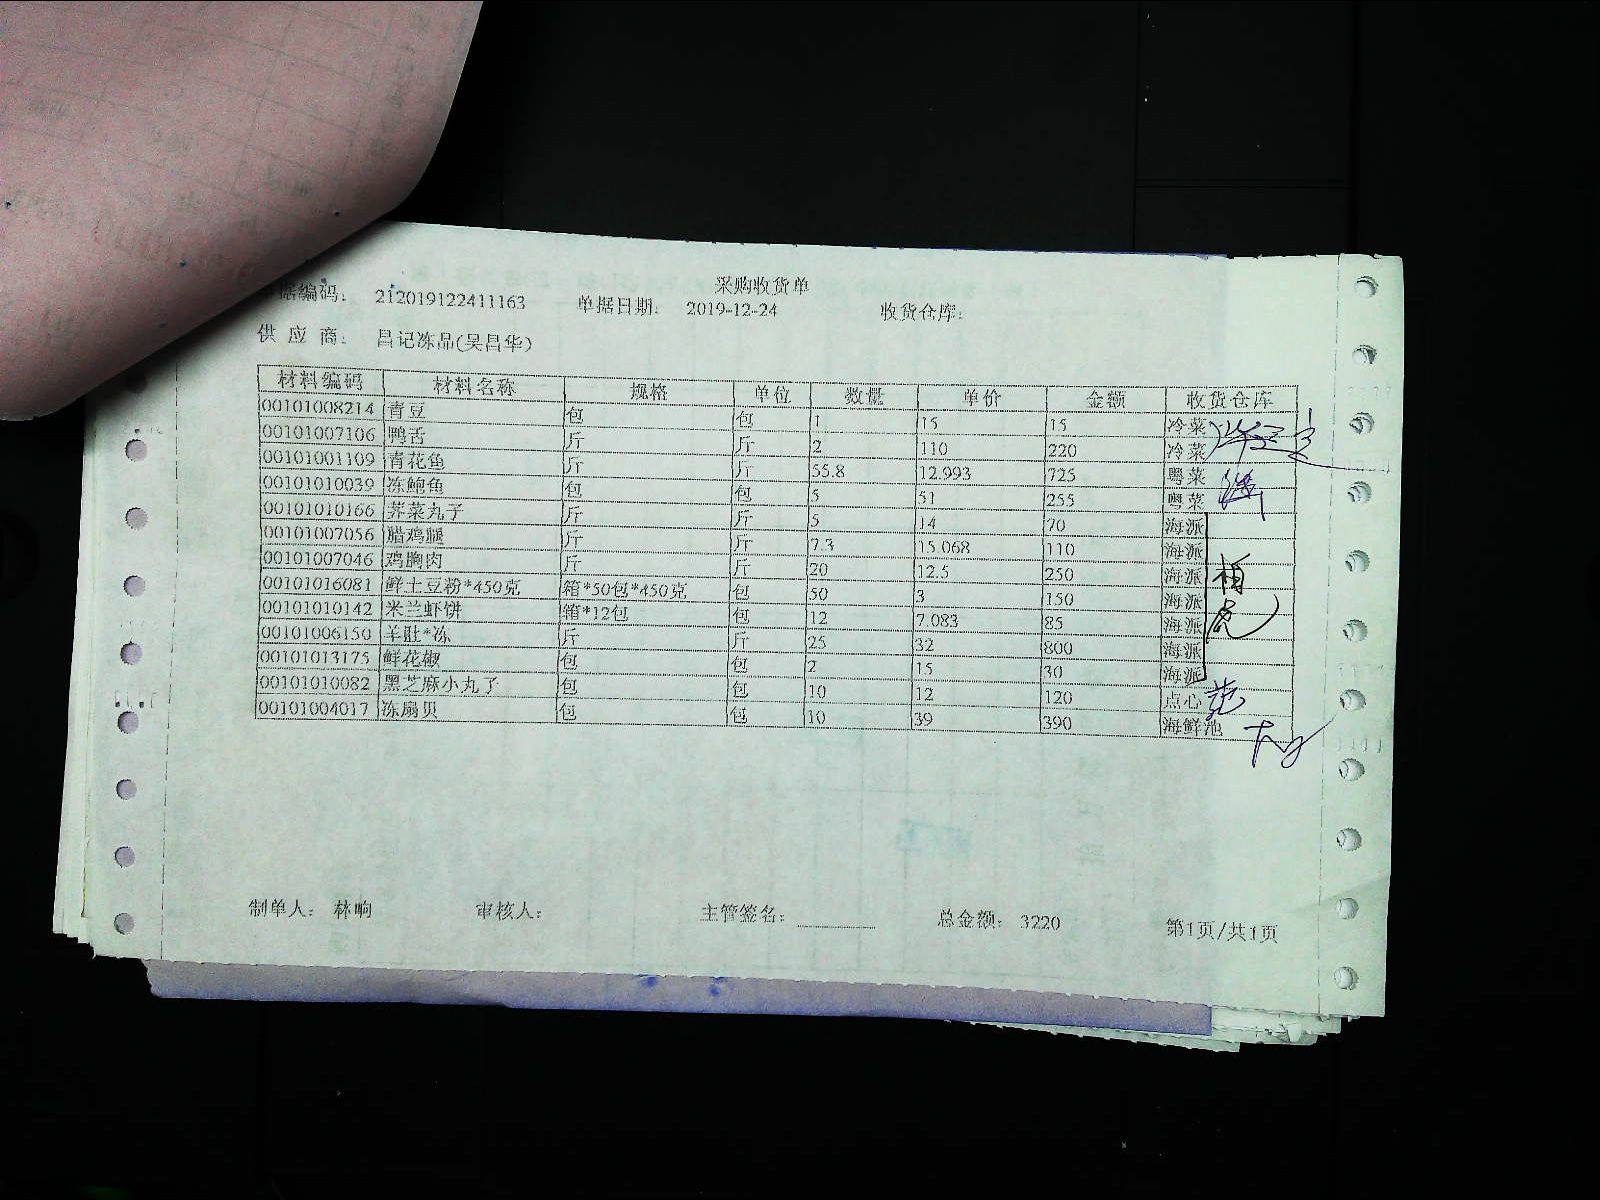 采购收货单
据编码: 212019122411163 单据日期: 2019-12-24 收货仓库:
供 应 商: 昌记冻品(吴昌华)
材料编码 材料名称 规格 单位 数量 单价 金额 收货仓库
00101008214 青豆 包 包 1 15 15 冷菜
00101007106 鸭舌 斤 斤 2 110 220 冷菜
00101001109 青花鱼 斤 斤 55.8 12.993 725 粤菜
00101010039 冻鲍鱼 包 包 5 51 255 粤菜
00101010166 荠菜丸子 斤 斤 5 14 70 海派
00101007056 腊鸡腿 斤 斤 7.3 15.068 110 海派
00101007046 鸡胸肉 斤 斤 20 12.5 250 海派
00101016081 鲜土豆粉*450克 箱*50包*450克 包 50 3 150 海派
00101010142 米兰虾饼 箱*12包 包 12 7.083 85 海派
00101006150 羊肚*冻 斤 斤 25 32 800 海派
00101013175 鲜花椒 包 包 2 15 30 海派
00101010082 黑芝麻小丸子 包 包 10 12 120 点心
00101004017 冻扇贝 包 包 10 39 390 海鲜池
制单人: 林响 审核人: 主管签名: 总金额: 3220 第1页/共1页